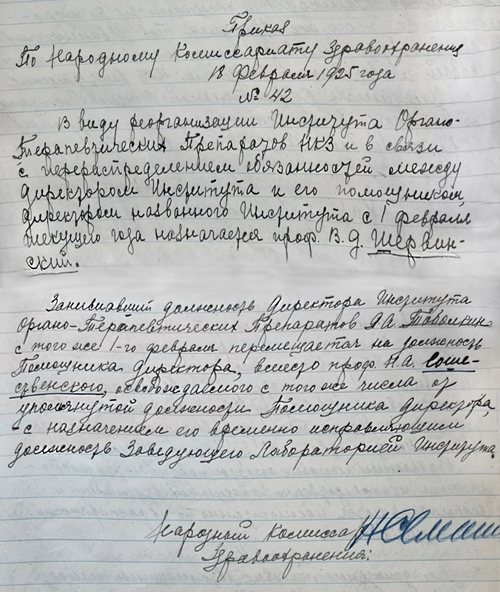 Приказ
По Народному Комиссариату Здравоохранения
18 февраля 1925 года
№ 42
В виду реорганизации Института Органо-
Терапевтических Препаратов НКЗ и в связи
с перераспределением обязанностей между
директором Института и его помощником,
директором названного Института с 1 февраля
текущего года назначается проф. В. Д. Шервин-
ский.
Занимавший должность Директора Института
Органо-Терапевтических Препаратов Я.А. Тоболкин
с того же 1-го февраля перемещается на должность
Помощника Директора, вместо проф. Н.А. Соше-
ственского, освобождаемого с того же числа от
упомянутой должности Помощника Директора,
с назначением его временно исправляющим
должность Заведующего Лабораторией Института.
Народный Комиссар
Здравоохранения: